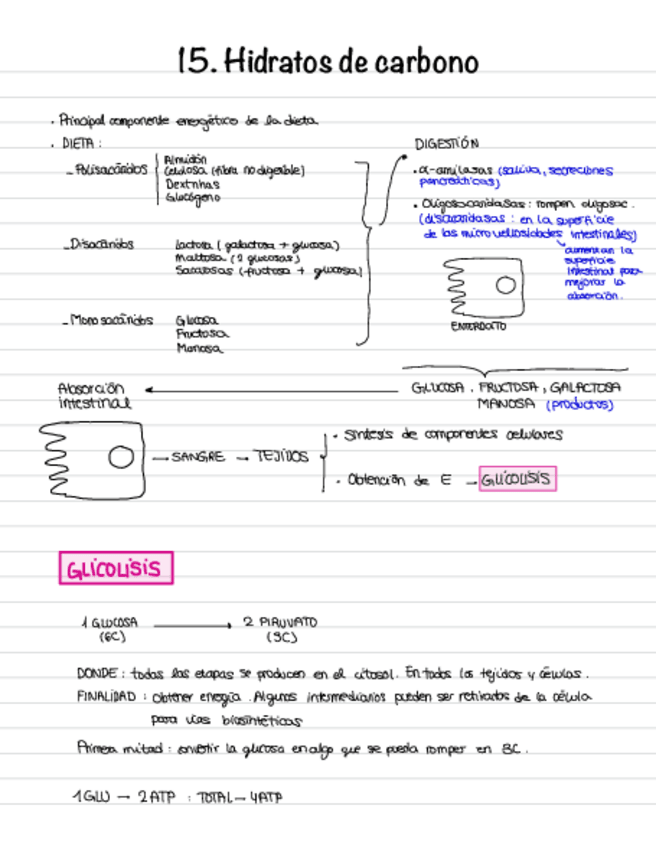 15. Hidratos de carbono
· Principal componente energético de la dieta
· DIETA :
- Polisacáridos
Almidón
Celulosa (fibra no digerible)
Dextrinas
Glucógeno
- Disacáridos
lactosa ( galactosa + glucosa)
Maltosa (2 glucosas)
Sacarosas (fructosa + glucosa)
- Monosacáridos
Glucosa
Fructosa
Manosa
DIGESTIÓN
· α-amilasas (saliva, secreciones
pancreáticas)
· Oligosacaridasas: rompen oligosac.
(disacaridasas : en la superficie
de las microvellosidades intestinales)
aumentan la
superficie
intestinal para
mejorar la
absorción.
ENTEROCITO
Absorción
intestinal
GLUCOSA . FRUCTOSA , GALACTOSA
MANOSA (productos)
→ SANGRE → TEJIDOS
· Síntesis de componentes celulares
· Obtención de E → GLICOLISIS
GLICOLISIS
1 GLUCOSA → 2 PIRUVATO
(6C) (3C)
DONDE : todas las etapas se producen en el citosol. En todos los tejidos y células.
FINALIDAD : obtener energía. Algunos intermediarios pueden ser retirados de la célula
para vías biosintéticas
Primera mitad : convertir la glucosa en algo que se pueda romper en 3C.
1 GLU → 2 ATP : TOTAL → 4 ATP